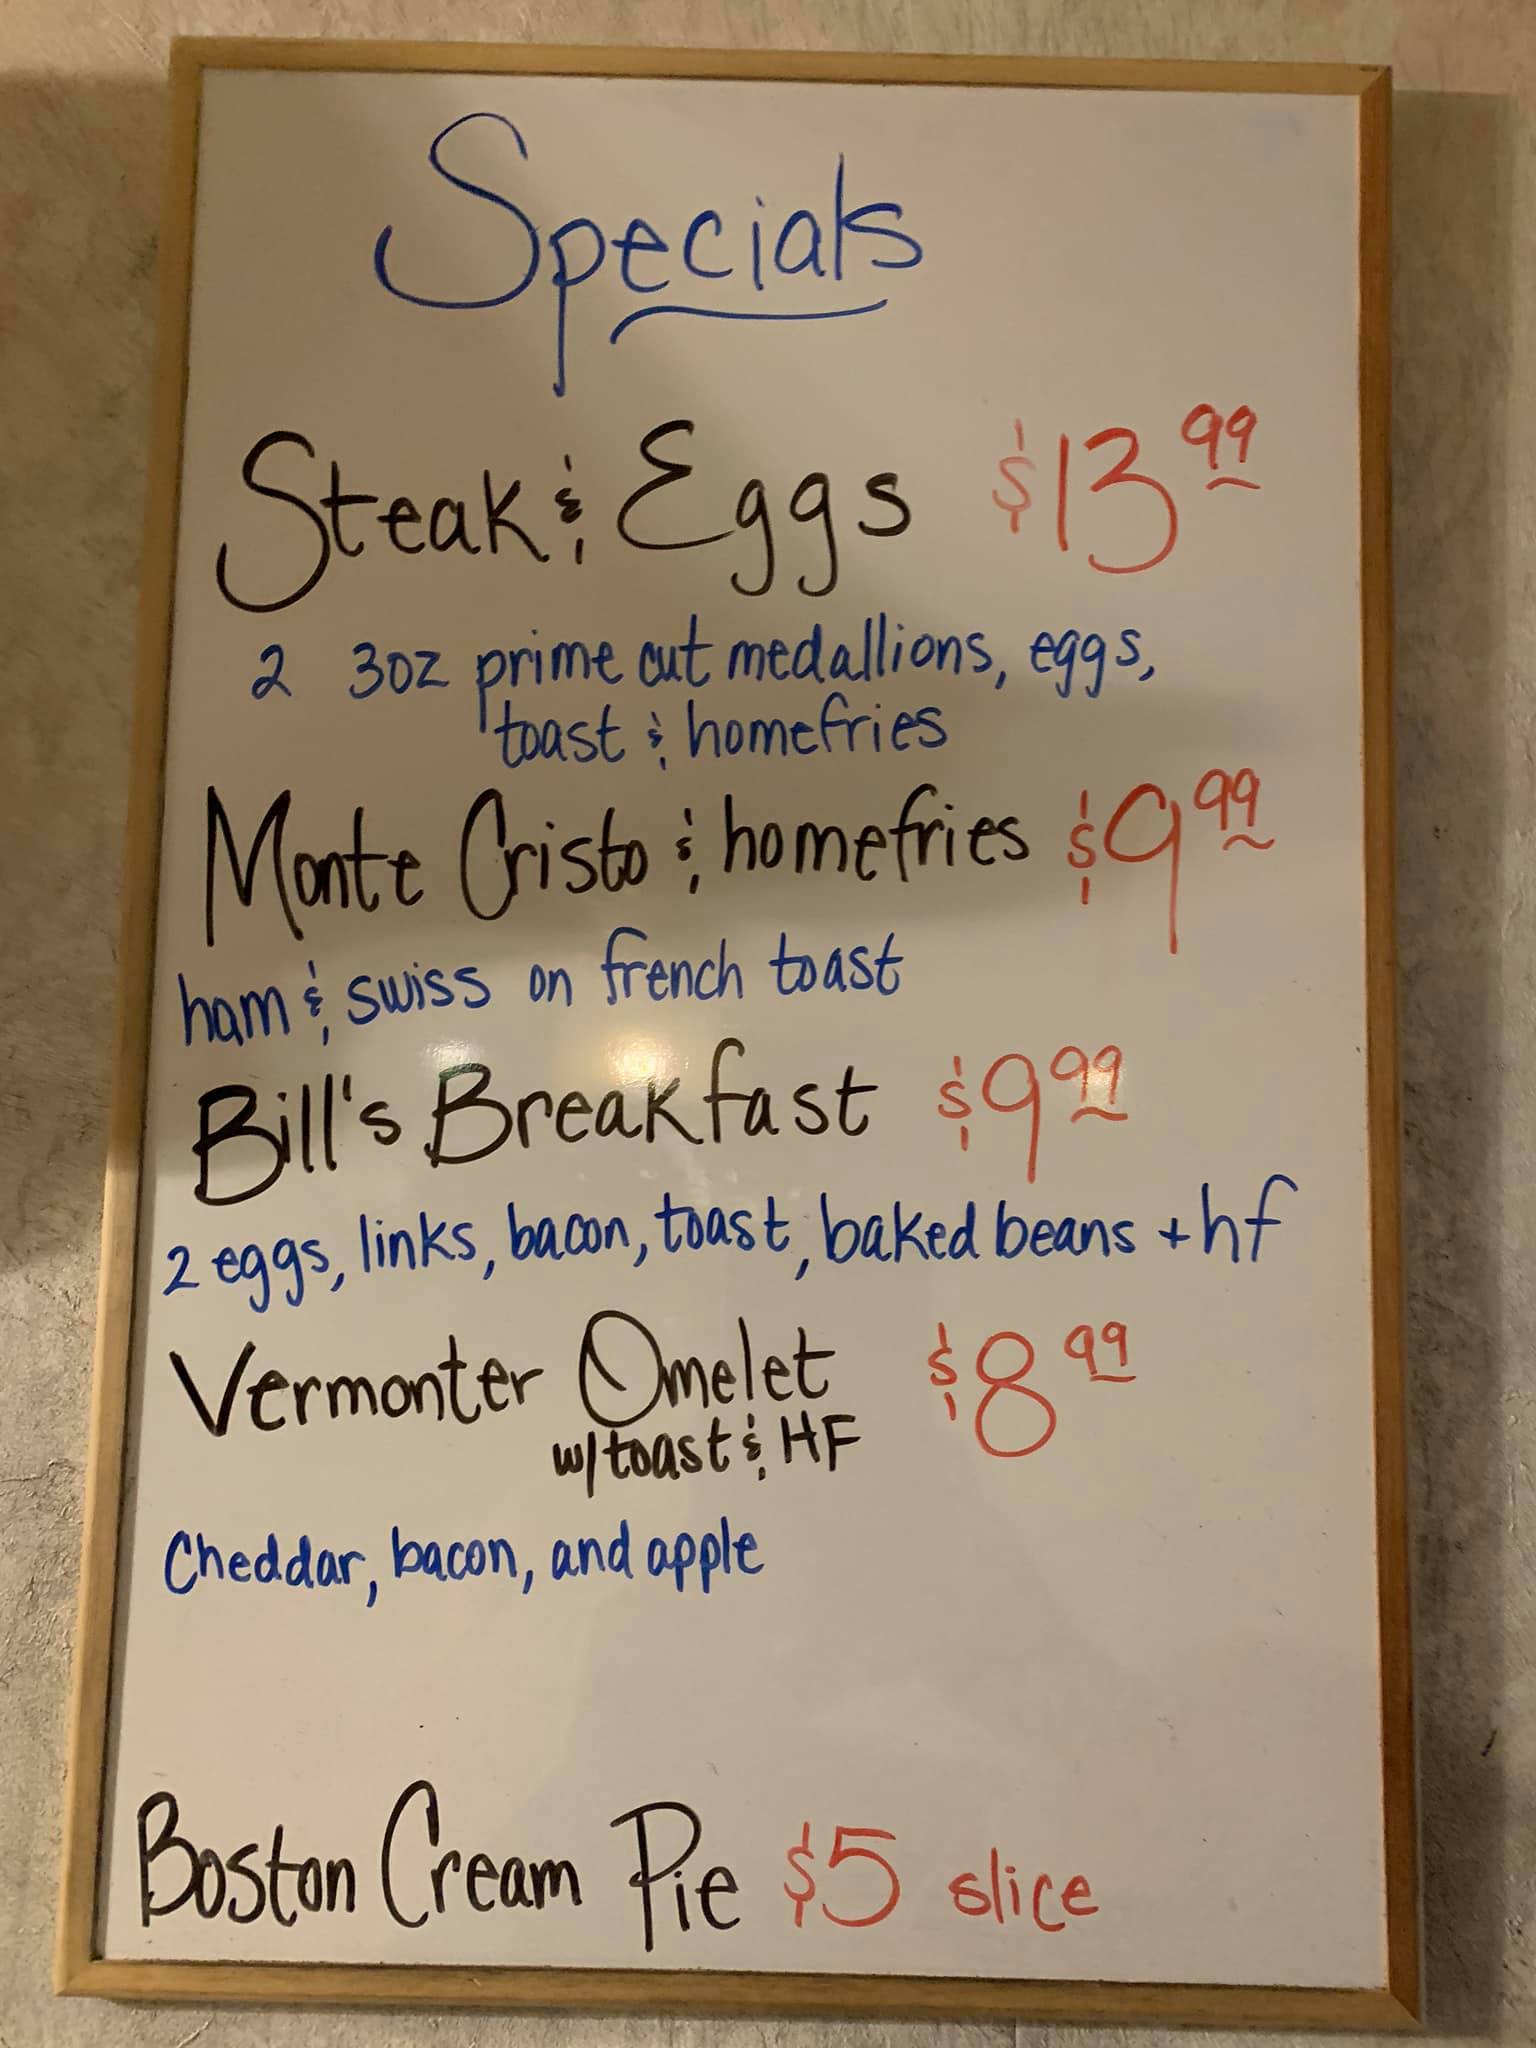 Specials
Steak & Eggs $13.99
2 3oz prime cut medallions, eggs,
toast & homefries
Monte Cristo & homefries $9.99
ham & swiss on french toast
Bill's Breakfast $9.99
2 eggs, links, bacon, toast, baked beans + hf
Vermonter Omelet $8.99
w/toast & HF
Cheddar, bacon, and apple
Boston Cream Pie $5 slice